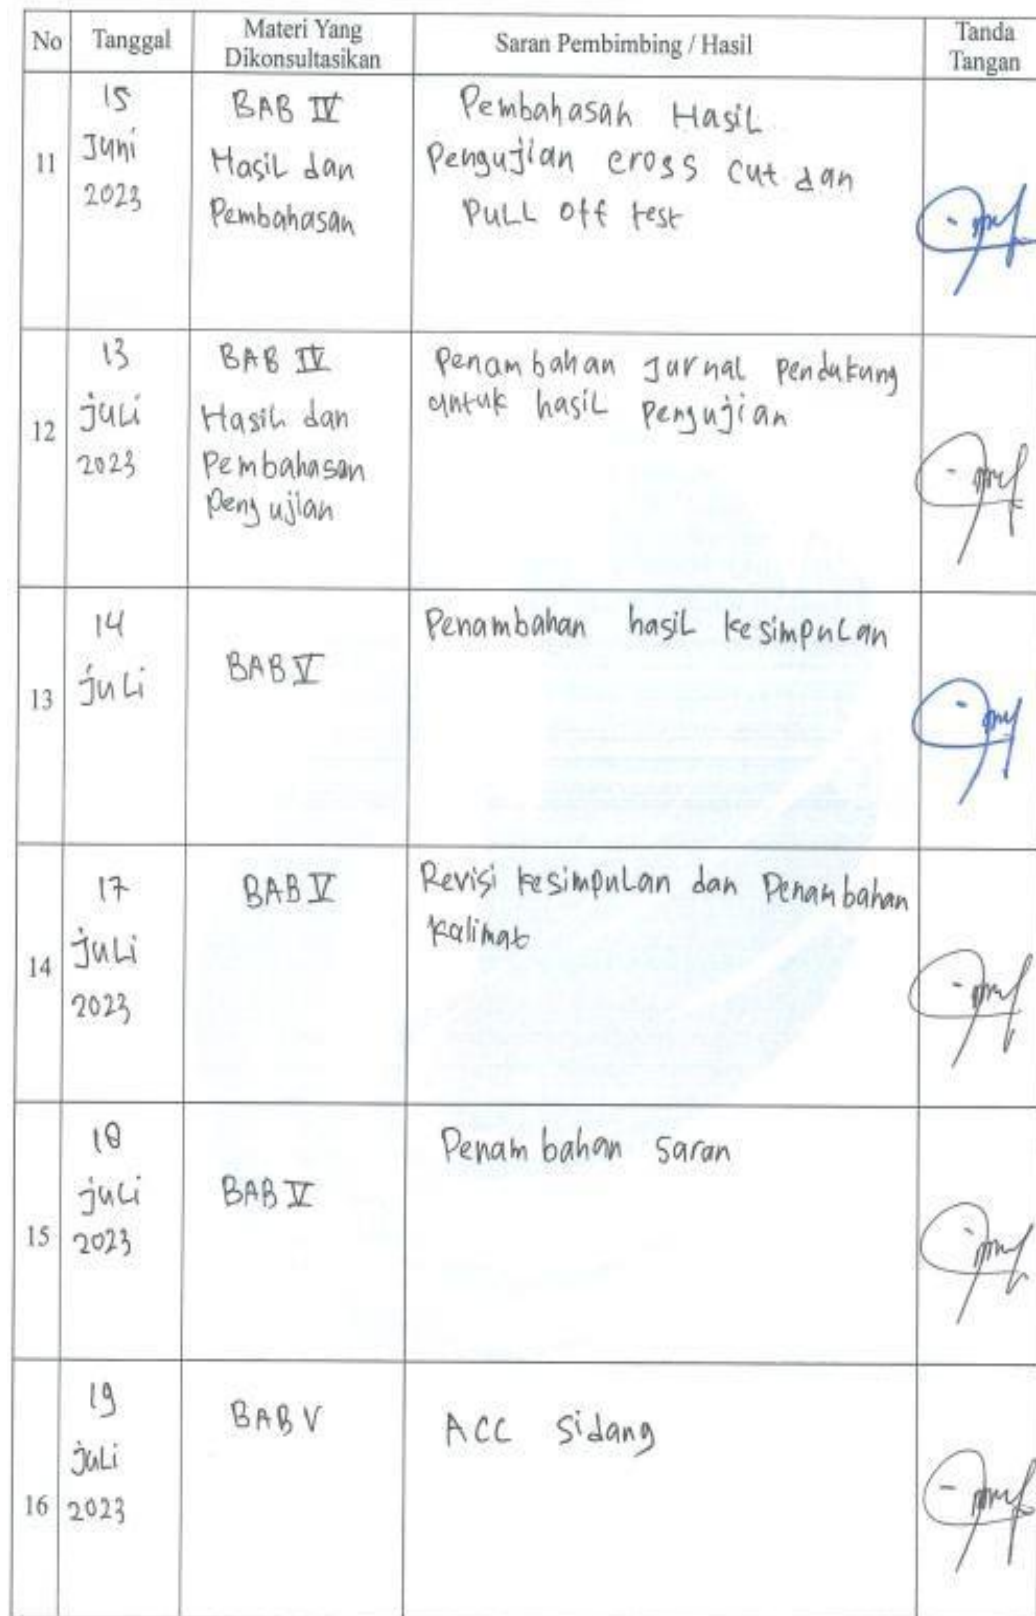 No Tanggal Materi Yang Dikonsultasikan Saran Pembimbing / Hasil Tanda Tangan
11
15
Juni
2023
BAB IV
Hasil dan
Pembahasan
Pembahasan Hasil
Pengujian cross cut dan
Pull off test
12
13
juli
2023
BAB IV
Hasil dan
Pembahasan
Pengujian
Penambahan Jurnal Pendukung
untuk hasil Pengujian
13
14
juli
BAB V
Penambahan hasil kesimpulan
14
17
juli
2023
BAB V
Revisi kesimpulan dan Penambahan
kalimat
15
18
juli
2023
BAB V
Penambahan saran
16
19
juli
2023
BAB V
ACC Sidang